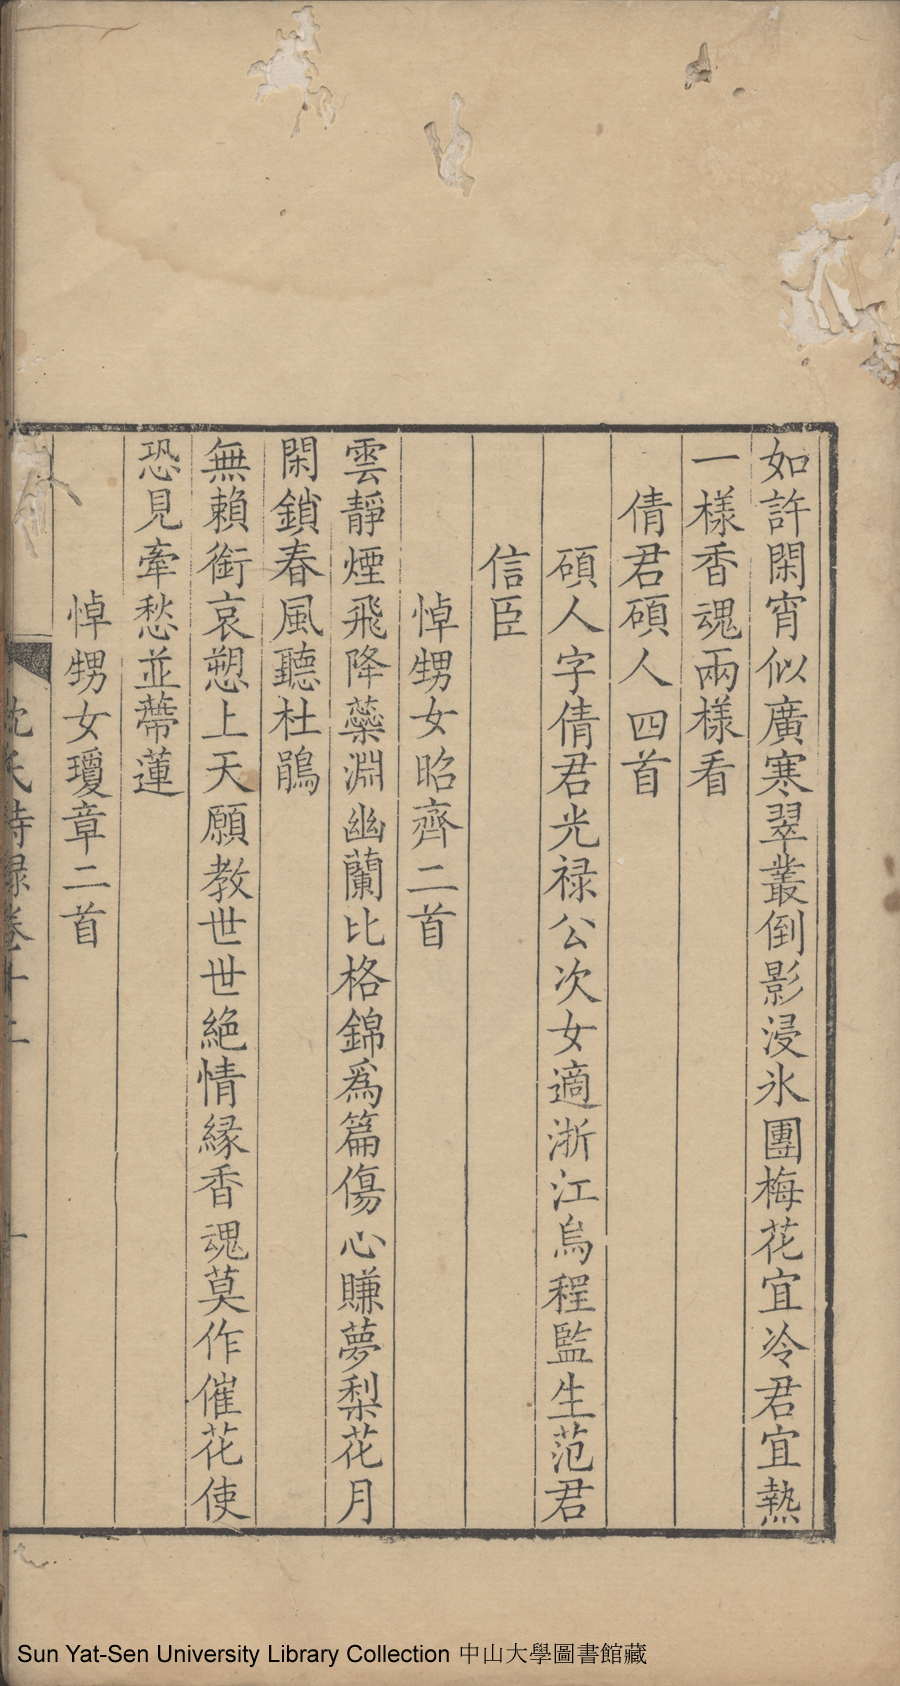 如許閑宵似廣寒翠叢倒影浸氷團梅花宜冷君宜熱
一樣香魂兩樣看
倩君碩人四首
碩人字倩君光禄公次女適浙江烏程監生范君
信臣
悼甥女昭齊二首
雲靜煙飛降蘂淵幽蘭比格錦爲篇傷心賺夢梨花月
閑鎖春風聽杜鵑
無賴銜哀愬上天願教世世絶情縁香魂莫作催花使
恐見牽愁並蔕蓮
悼甥女瓊章二首
沈氏詩録卷十二
Sun Yat-Sen University Library Collection 中山大學圖書館藏